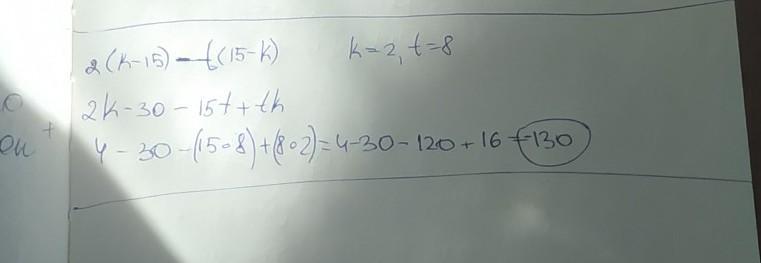 2(k-15)-t(15-k) k=2, t=8
2k-30-15t+tk
4-30-(15∘8)+(8∘2)=4-30-120+16=-130